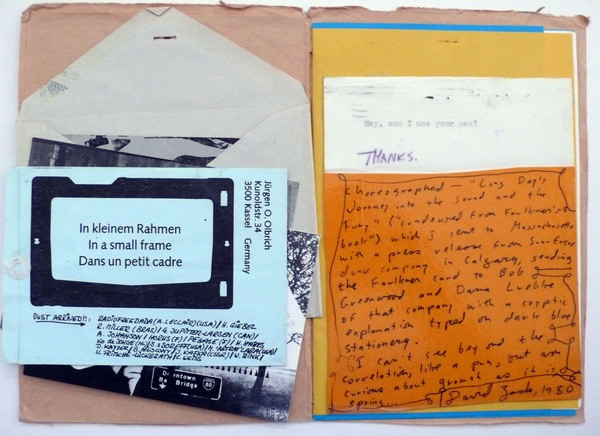 In kleinem Rahmen
In a small frame
Dans un petit cadre
Jürgen O. Olbrich
Kunoldstr. 34
3500 Kassel Germany
JUST ARRIVED!!:
RADIOFREEDADA (A. LECLAIR) (USA)/ H. GIEBEL
R. MILLER (BRAS)/ G. JUPITTER-LARSEN (CAN)/
A. JOHANSON / HORUS (F)/ PEGASE (F)/
Downtown
Bridge
Hey, can I use your pen?
THANKS.
choreographed — "Long Day's
Journey into the Sound and the
Fury" ("condensed from Faulknerian
book") which I sent to Massachusetts
with a press release from Sun-Ergos
dance company in Calgary, sending
the Faulkner card to Bob
Greenwood and Dana Luebke
of that company with a cryptic
explanation typed on dark blue
stationery.
I can't see beyond the
correlation, like a pun, but am
curious about growth as it is
spring...
David Zack, 1980